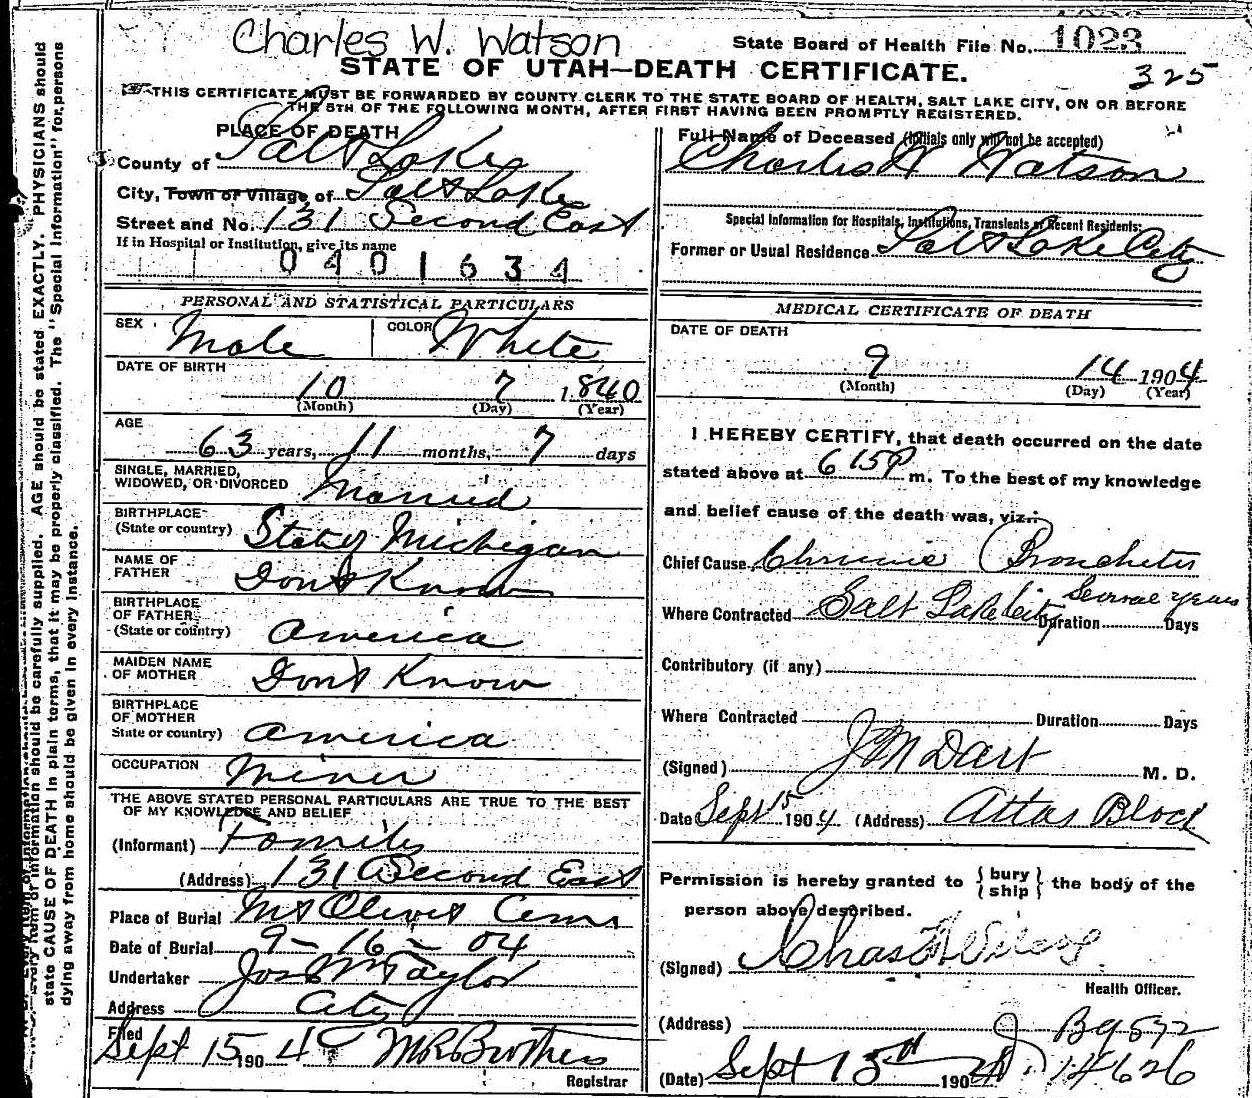 Charles W. Watson
State Board of Health File No. 1023
325
STATE OF UTAH—DEATH CERTIFICATE.
THIS CERTIFICATE MUST BE FORWARDED BY COUNTY CLERK TO THE STATE BOARD OF HEALTH, SALT LAKE CITY, ON OR BEFORE
THE 5TH OF THE FOLLOWING MONTH, AFTER FIRST HAVING BEEN PROMPTLY REGISTERED.
PLACE OF DEATH
County of Salt Lake
City, Town or Village of Salt Lake
Street and No. 131 Second East
If in Hospital or Institution, give its name
0401634
PERSONAL AND STATISTICAL PARTICULARS
SEX Male COLOR White
DATE OF BIRTH
10 7 1840
(Month) (Day) (Year)
AGE
63 years, 11 months, 7 days
SINGLE, MARRIED,
WIDOWED, OR DIVORCED Married
BIRTHPLACE
(State or country) State of Michigan
NAME OF
FATHER Dont Know
BIRTHPLACE
OF FATHER
(State or country) America
MAIDEN NAME
OF MOTHER Dont Know
BIRTHPLACE
OF MOTHER
State or country) America
OCCUPATION Miner
THE ABOVE STATED PERSONAL PARTICULARS ARE TRUE TO THE BEST
OF MY KNOWLEDGE AND BELIEF
(Informant) Family
(Address) 131 Second East
Place of Burial Mt Olivet Cem
Date of Burial 9-16-04
Undertaker Jos Wm Taylor
Address City
Filed
Sept 15 1904 Brothers
Registrar
Full Name of Deceased (Initials only will not be accepted)
Charles W Watson
Special Information for Hospitals, Institutions, Transients or Recent Residents:
Former or Usual Residence Salt Lake City
MEDICAL CERTIFICATE OF DEATH
DATE OF DEATH
9 14 1904
(Month) (Day) (Year)
I HEREBY CERTIFY, that death occurred on the date
stated above at 6 15 P m. To the best of my knowledge
and belief cause of the death was, viz.:
Chief Cause Chronic Bronchitis
Several years
Where Contracted Salt Lake City Duration Days
Contributory (if any)
Where Contracted Duration Days
(Signed) J M Dart M. D.
Date Sept 15 1904 (Address) Attas Block
Permission is hereby granted to { bury ship } the body of the
person above described.
(Signed) Chas
Health Officer.
(Address)
(Date) Sept 15th 1904
14626
state CAUSE OF DEATH in plain terms, that it may be properly classified. The "Special Information" for persons
dying away from home should be given in every instance.
information should be carefully supplied. AGE should be stated EXACTLY. PHYSICIANS should